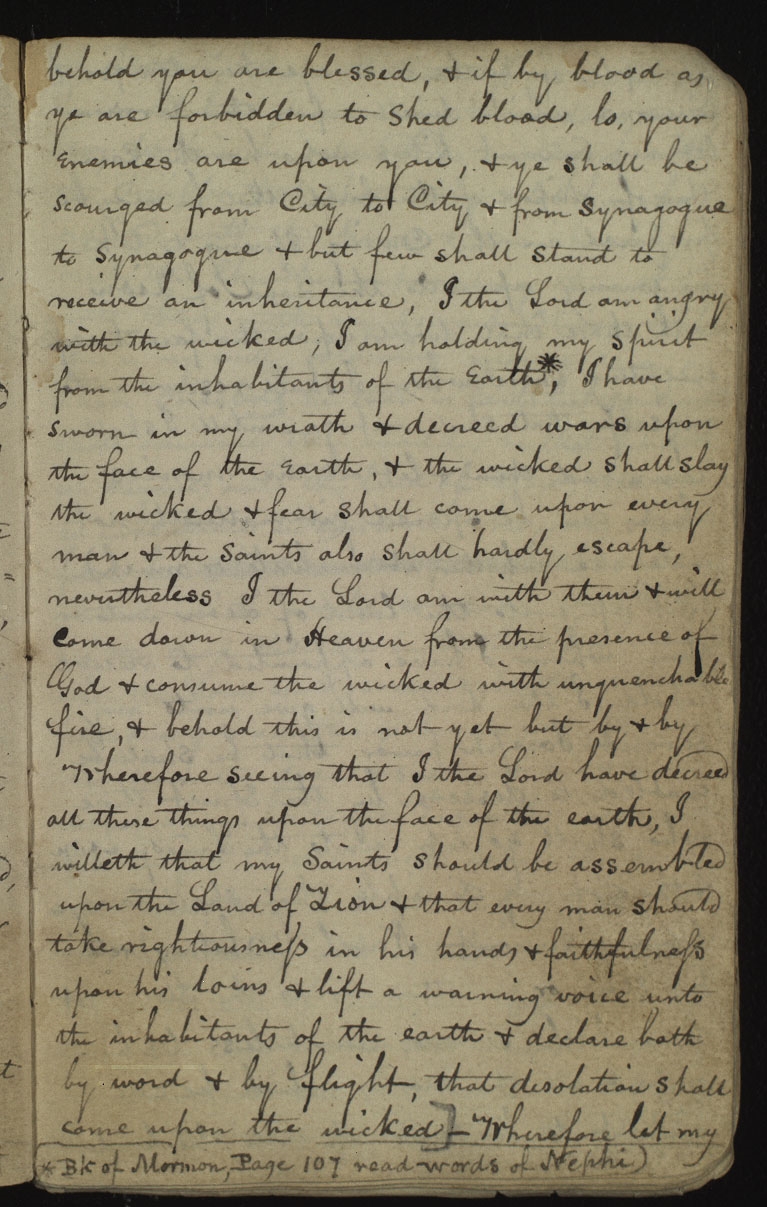 behold you are blessed, & if by blood as
ye are forbidden to Shed blood, lo, your
Enemies are upon you, & ye shall be
Scourged from City to City & from Synagogue
to Synagogue & but few shall Stand to
receive an inheritance, I the Lord am angry
with the wicked, I am holding my Spirit
from the inhabitants of the Earth*, I have
Sworn in my wrath & decreed wars upon
the face of the Earth, & the wicked Shall Slay
the wicked & fear Shall come upon every
man & the Saints also Shall hardly escape,
nevertheless I the Lord am with them & will
Come down in Heaven from the presence of
God & consume the wicked with unquenchable
fire, & behold this is not yet but by & by
Wherefore Seeing that I the Lord have decreed
all these things upon the face of the earth, I
willeth that my Saints Should be assembled
upon the Land of Zion & that every man should
take righteousness in his hands & faithfulness
upon his loins & lift a warning voice unto
the inhabitants of the earth & declare both
by word & by flight, that desolation Shall
come upon the wicked] – Wherefore let my
* Bk of Mormon, Page 107 read words of Nephi)